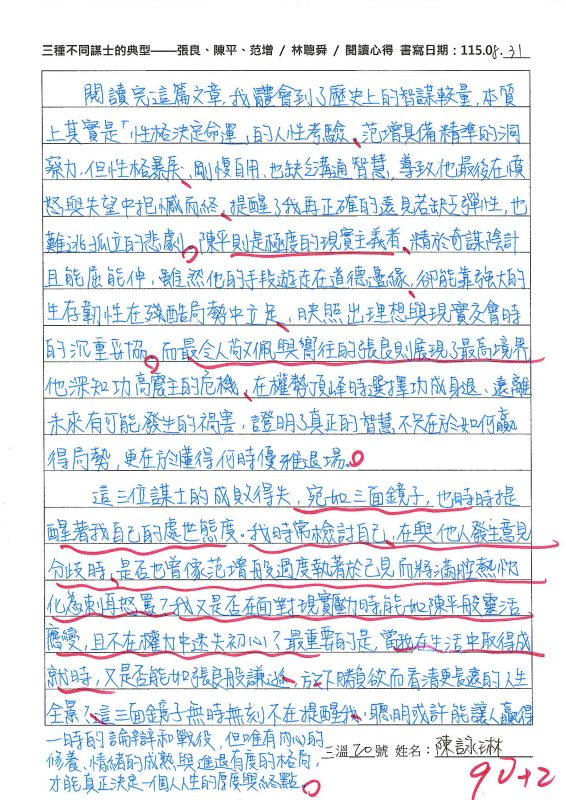 三種不同謀士的典型——張良、陳平、范增 / 林聰舜 / 閱讀心得 書寫日期：115.08.31
閱讀完這篇文章，我體會到了歷史上的智謀較量，本質
上其實是「性格決定命運」的人性考驗、范增具備精準的洞
察力，但性格暴戾、剛愎自用，也缺乏溝通智慧，導致他最後在憤
怒與失望中抱憾而終，提醒了我再正確的遠見若缺乏彈性，也
難逃孤立的悲劇。陳平則是極度的現實主義者、精於奇謀陰計
且能屈能伸，雖然他的手段遊走在道德邊緣，卻能靠強大的
生存韌性在殘酷局勢中立足，映照出理想與現實交會時
的沉重妥協。而最令人敬佩與嚮往的張良則展現了最高境界
他深知功高震主的危機、在權勢頂峰時選擇功成身退、遠離
未來有可能發生的禍害，證明了真正的智慧不只在於如何贏
得局勢，更在於懂得何時優雅退場。
這三位謀士的成敗得失，宛如三面鏡子，也時時提
醒著我自己的處世態度。我時常檢討自己，在與他人發生意見
分歧時，是否也曾像范增般過度執著於己見而將滿腔熱忱
化為刺耳怒罵？我又是否在面對現實壓力時能如陳平般靈活
應變，且不在權力中迷失初心？最重要的是，當我在生活中取得成
就時，又是否能如張良般謙遜，放下勝負欲而看清更長遠的人生
全景？這三面鏡子無時無刻不在提醒我，聰明或許能讓人贏得
一時的論辯和戰役，但唯有內心的
修養、情緒的成熟與進退有度的格局，
才能真正決定一個人人生的厚度與終點。
三溫20號 姓名：陳詠琳
90+2